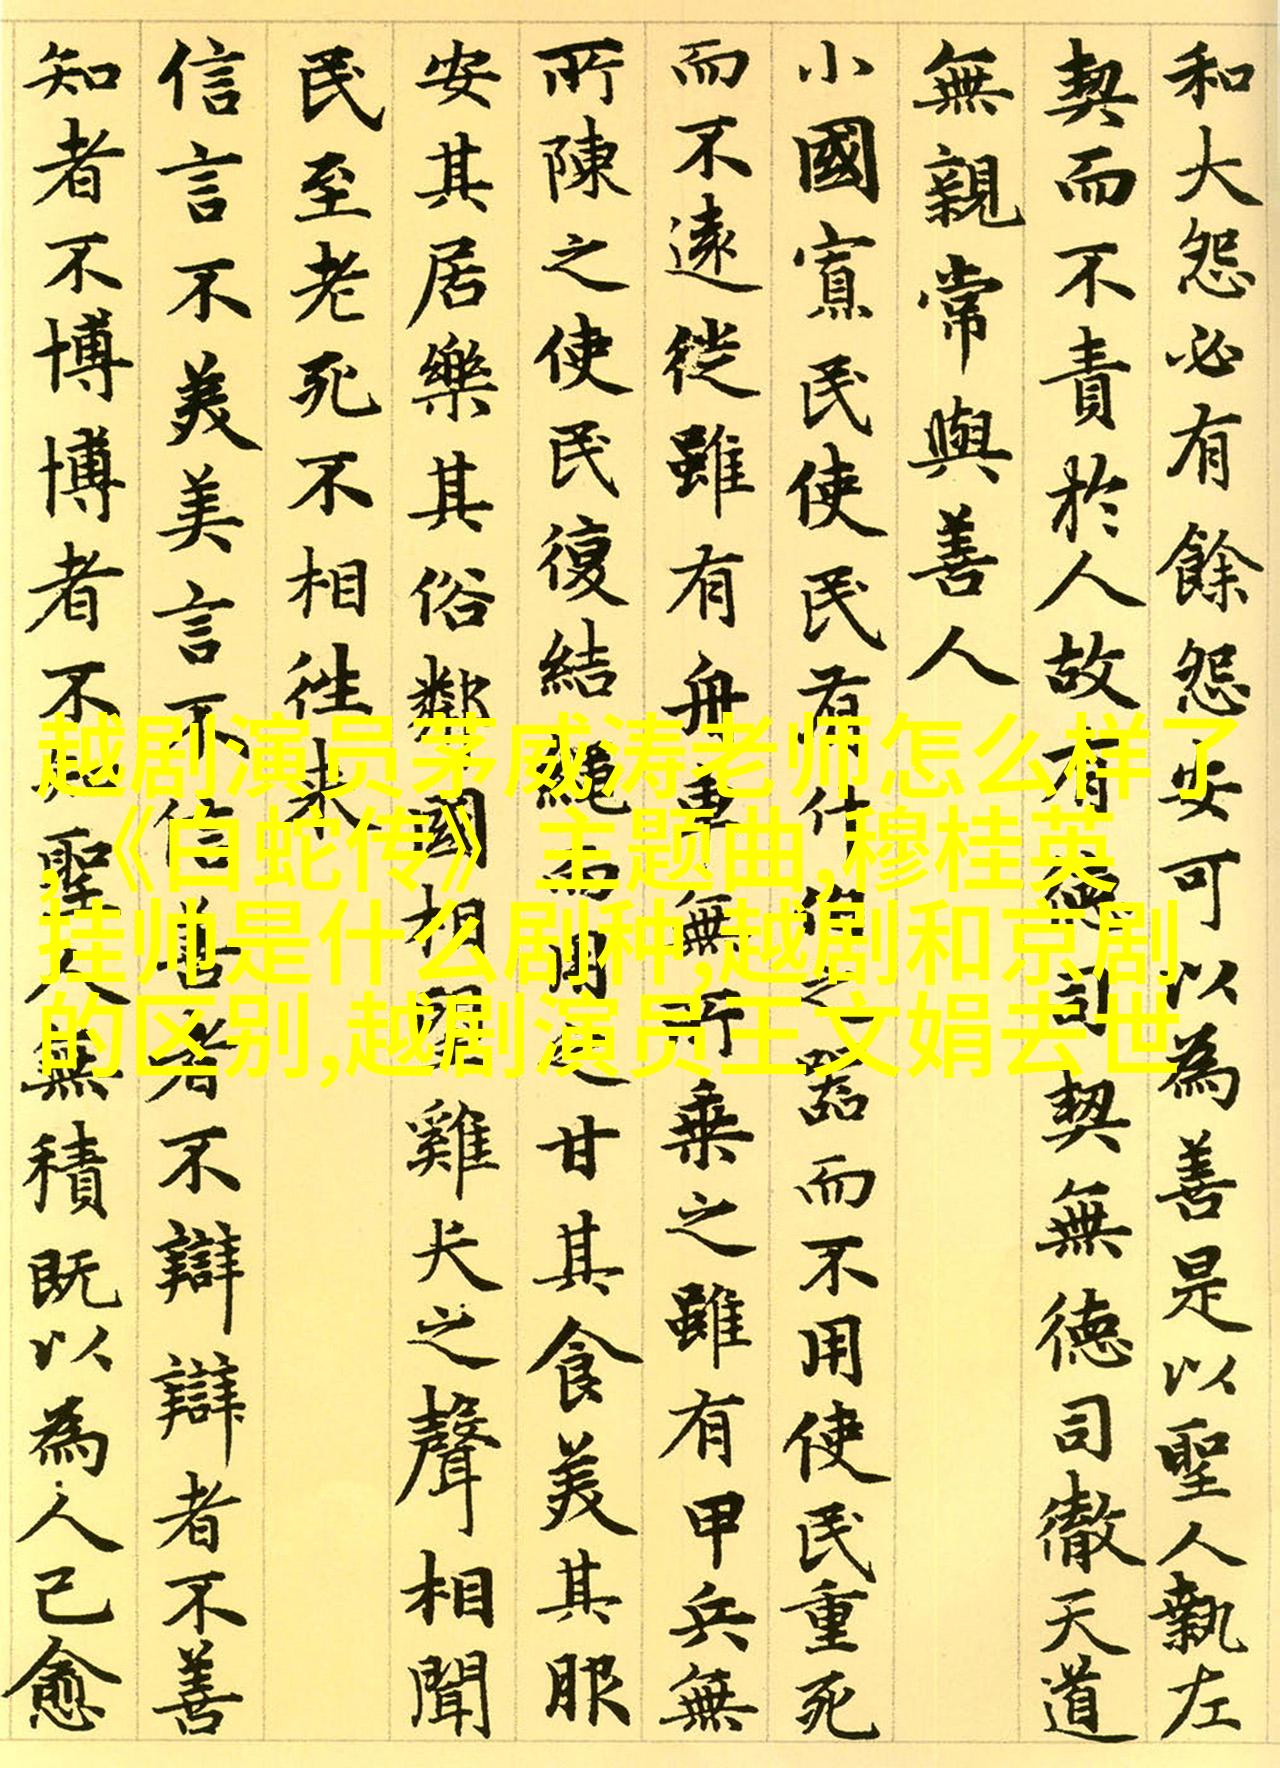 和大怨必有餘怨安可以為善是以聖人執左
契而不責於人故有德司契無德司徹天道
無親常與善人
小國寡民使民有什伯之器而不用使民重死
而不遠徙雖有舟車無所乘之雖有甲兵無
所陳之使民復結繩而用之甘其食美其服
安其居樂其俗鄰國相望雞犬之聲相聞
民至老死不相往来
信言不美美言不信善者不辯辯者不善
知者不博博者不知聖人無積既以為人己愈
越剧演员茅威涛老师怎么样了
,《白蛇传》主题曲,穆桂英
挂帅是什么剧种,越剧和京剧
的区别,越剧演员王文娟去世